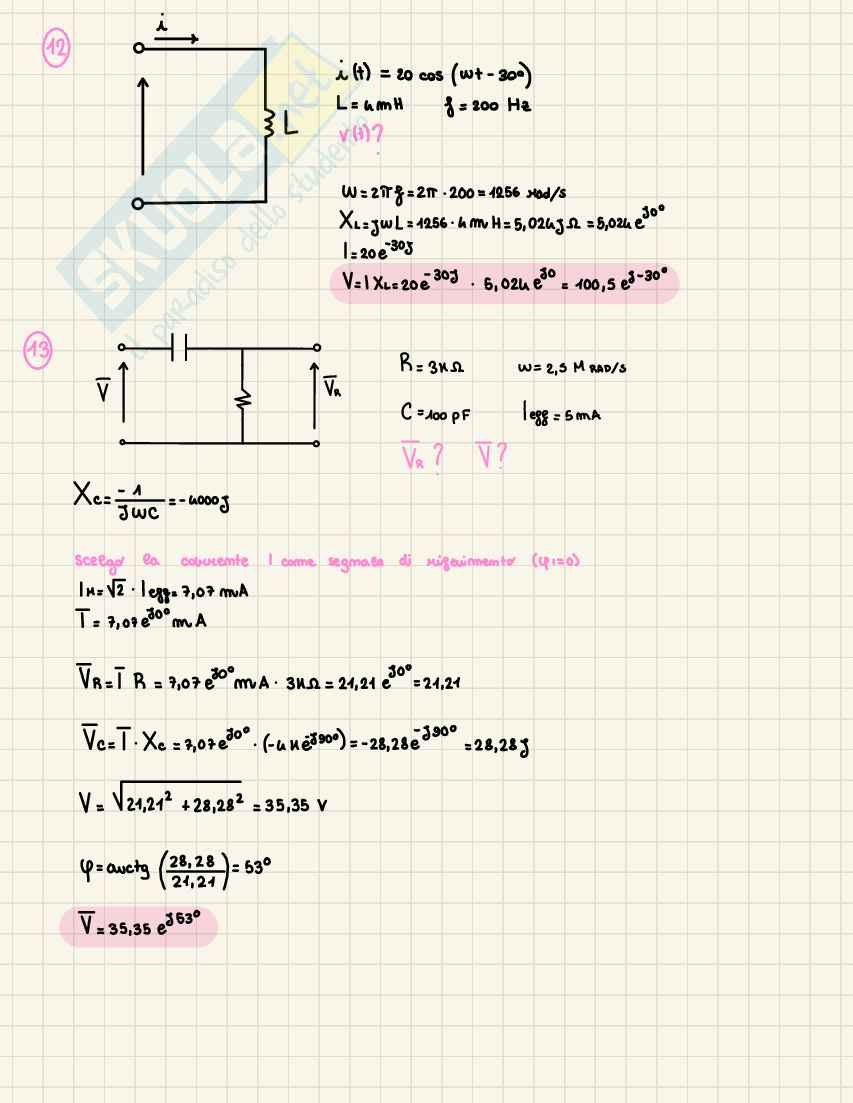 12
i
i(t) = 20 cos (wt - 30°)
L = 4mH f = 200 Hz
L
v(t)?
w = 2πf = 2π · 200 = 1256 rad/s
XL = jwL = 1256 · 4 m H = 5,024j Ω = 5,024 e^j0°
I = 20 e^-30j
V = I XL = 20 e^-30j · 5,024 e^j0 = 100,5 e^j-30°
SKUOLA.net
il paradiso dello studente
13
V̅ V̅R
R = 3KΩ w = 2,5 M RAD/s
C = 100 pF Ieff = 5mA
V̅R? V̅?
Xc = -1/jwC = -4000j
Scelgo la corrente I come segnale di riferimento (φi=0)
IM = √2 · Ieff = 7,07 mA
I̅ = 7,07 e^j0° mA
V̅R = I̅ R = 7,07 e^j0° mA · 3KΩ = 21,21 e^j0° = 21,21
V̅c = I̅ · Xc = 7,07 e^j0° · (-4K e^-j90°) = -28,28 e^-j90° = 28,28j
V = √21,21² + 28,28² = 35,35 V
φ = arctg (28,28/21,21) = 53°
V̅ = 35,35 e^j53°